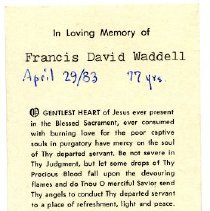 In Loving Memory of
Francis David Waddell
April 29/83 77 yrs.
O GENTLEST HEART of Jesus ever present
in the Blessed Sacrament, ever consumed
with burning love for the poor captive
souls in purgatory have mercy on the soul
of Thy departed servant. Be not severe in
Thy Judgment, but let some drops of Thy
Precious Blood fall upon the devouring
flames and do Thou O merciful Savior send
Thy angels to conduct Thy departed servant
to a place of refreshment, light and peace.